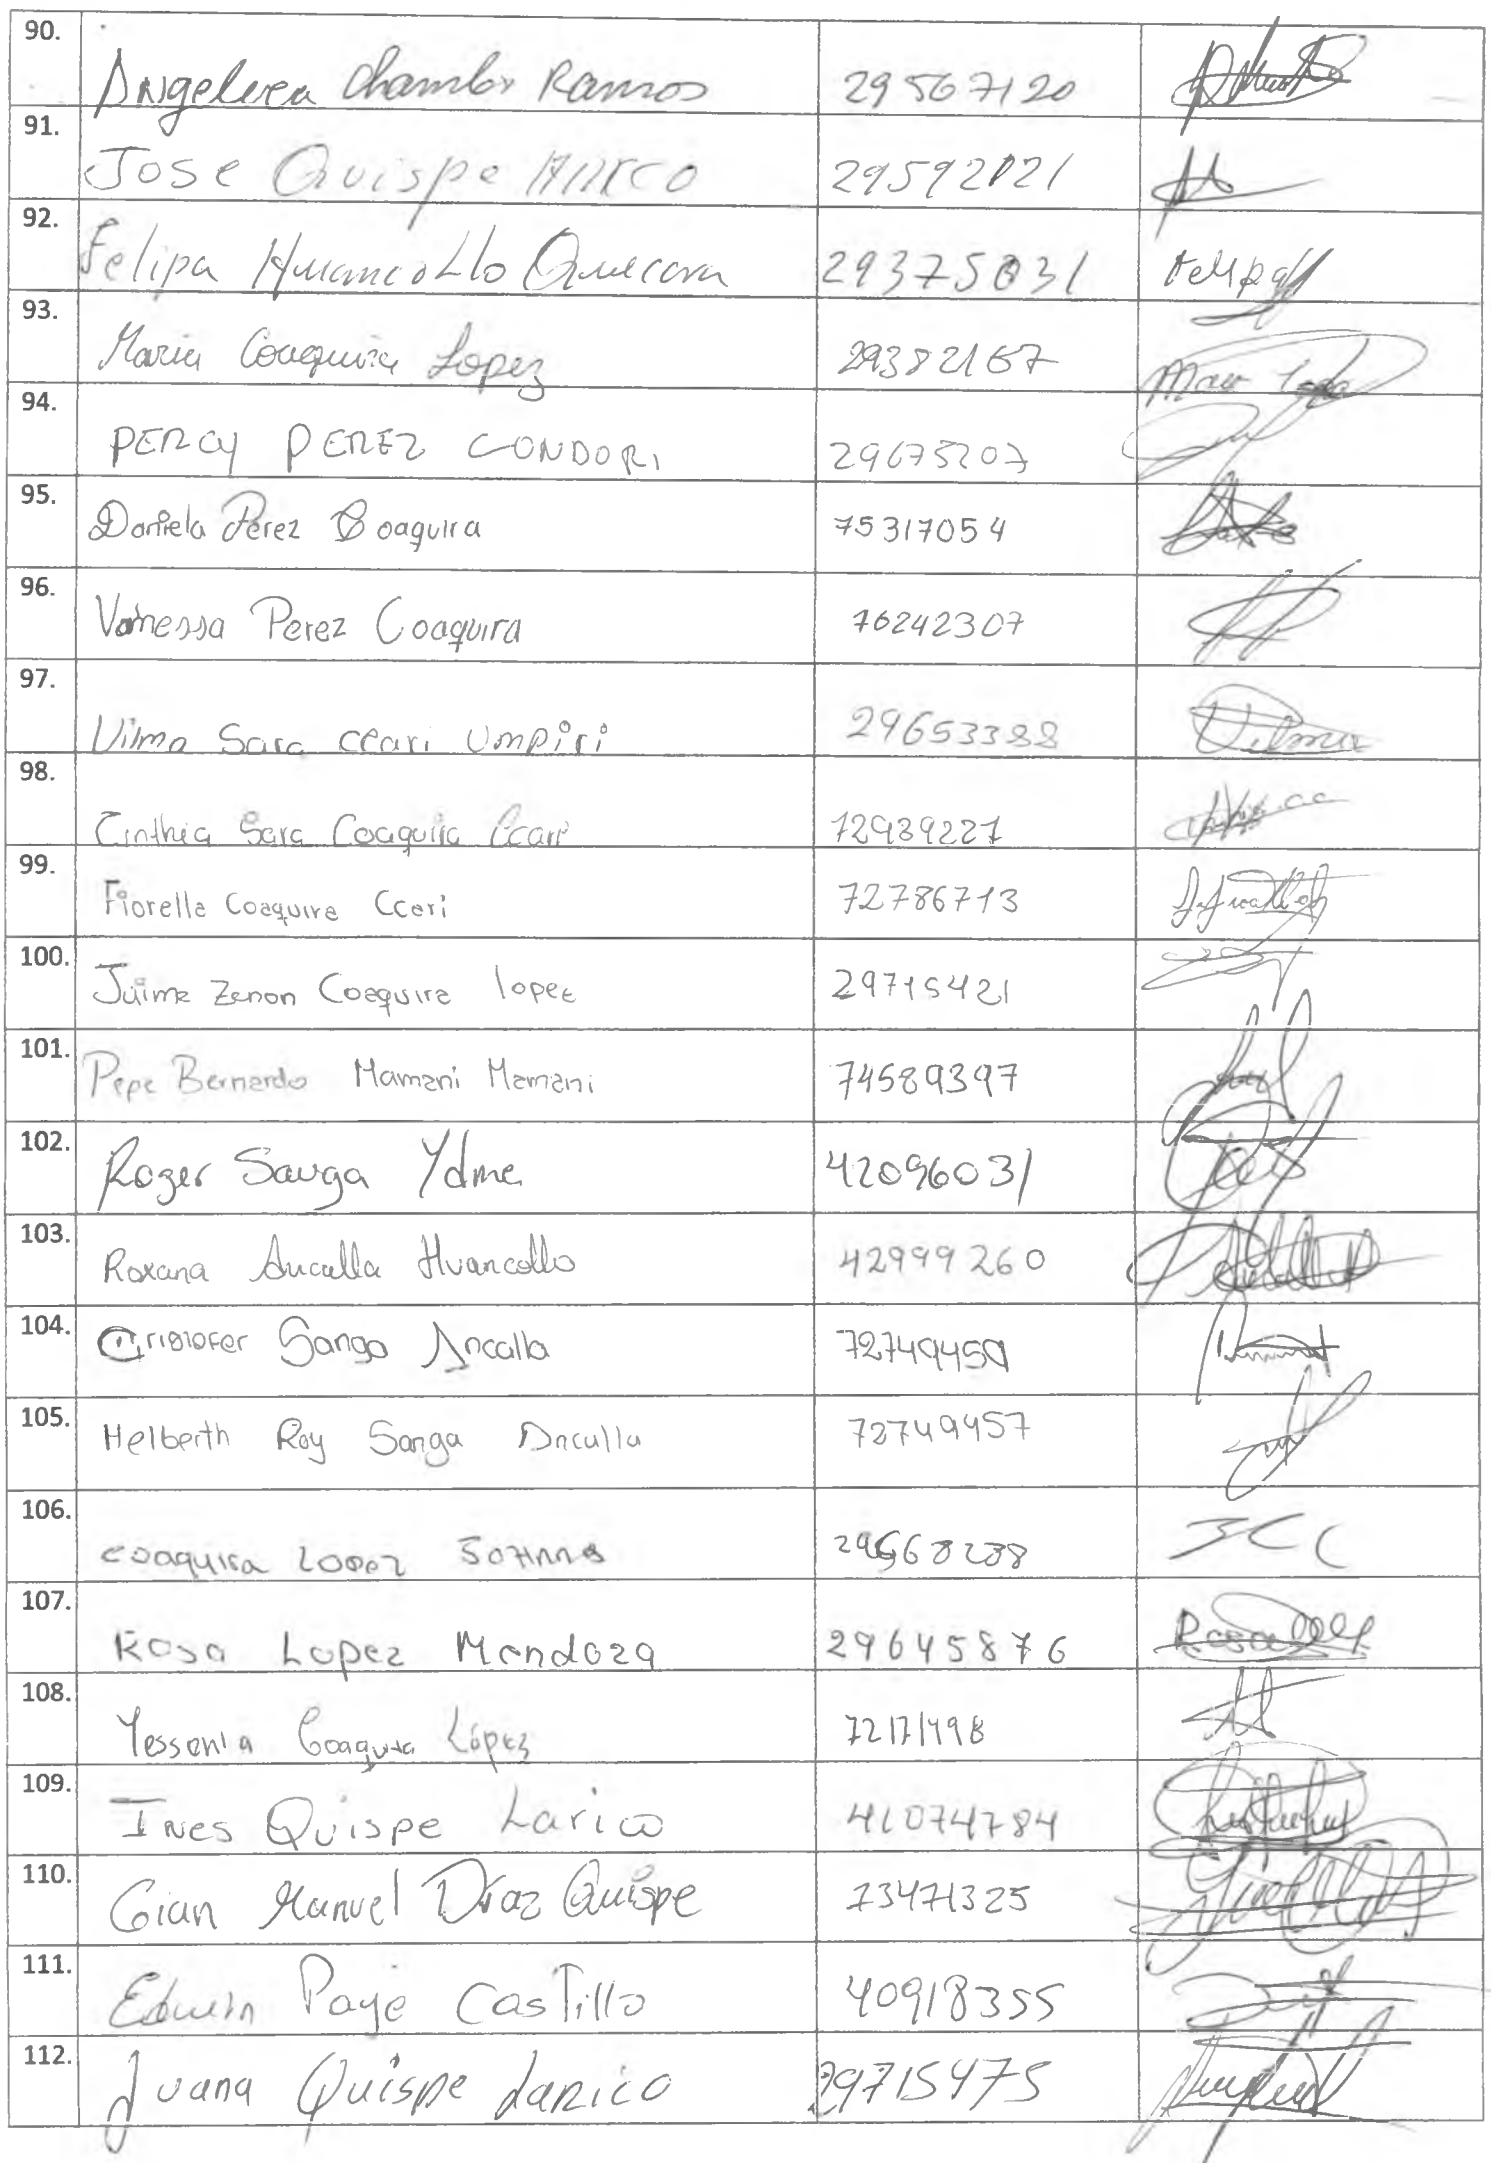 90. Angelica Chambi Ramos 29567120
91. Jose Quispe 29592021
92. Felipa Huancollo Quecara 29375831 Felipa
93. Maria Coaquira Lopez 29382167
94. PERCY PEREZ CONDORI 29675207
95. Daniela Perez Coaquira 75317054
96. Vanessa Perez Coaquira 76242307
97. Vilma Sara Ccari Umpiri 29653388 Vilma
98. Cinthia Sara Coaquira Ccari 72939227
99. Fiorella Coaquira Ccari 72786713
100. Jaime Zenon Coaquira lopez 29715421
101. Pepe Bernardo Mamani Mamani 74589397
102. Roger Sanga Ydme 42096031
103. Roxana Anculla Huancollo 42999260
104. Cristofer Sanga Anculla 72749459
105. Helberth Roy Sanga Anculla 72749457
106. coaquira Lopez 29668238 JCC
107. Rosa Lopez Mendoza 29645876 Rosa
108. Yessenia Coaquira López 72171498
109. Ines Quispe Larico 41074784
110. Gian Manuel Diaz Quispe 73471325
111. Edwin Paye Castillo 40918355
112. Juana Quispe Larico 29715475